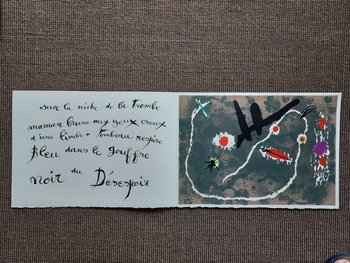 sur la niche de la trombe
maman brune aux yeux creux
d'une limbe - tombeau respire
Bleu dans le gouffre
noir du Désespoir